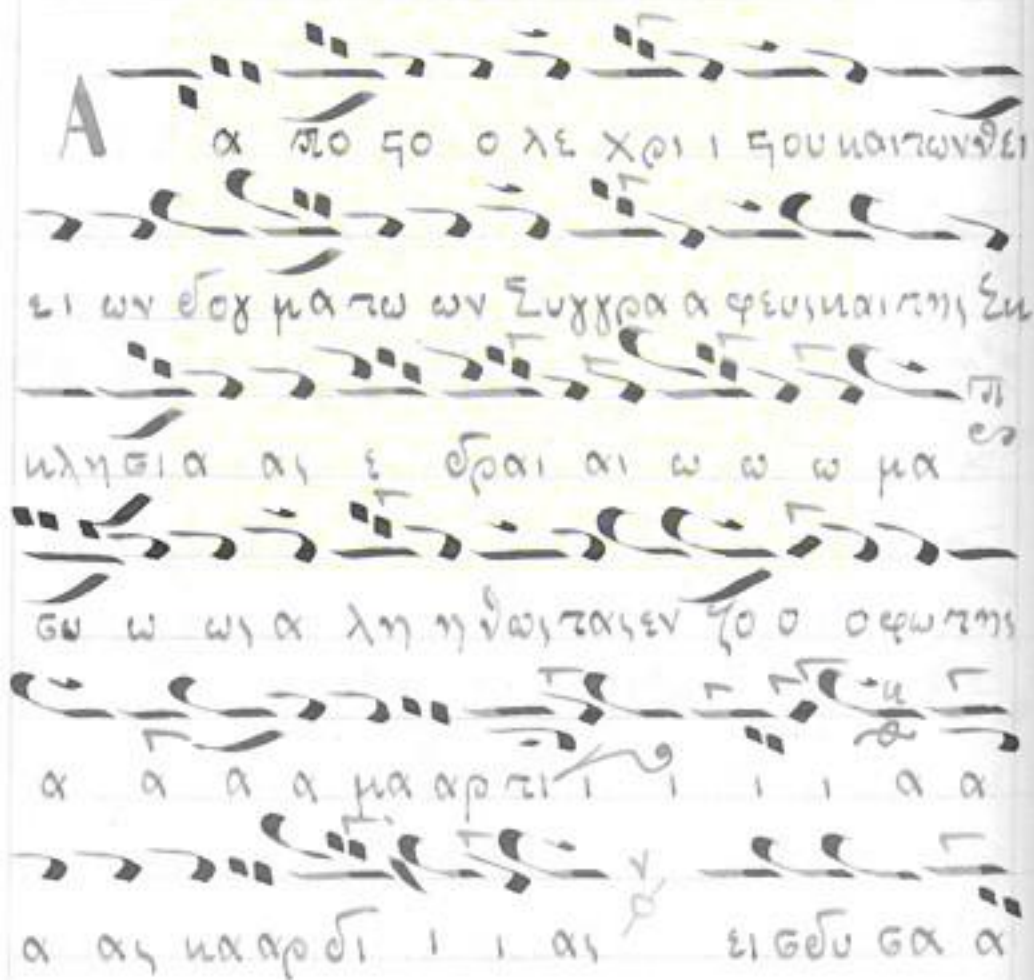 Α α πο ϛο ο λε χρι ι ϛου και των θει
ει ων δογ μα τω ων Συγγρα α φευς και της Εκ
κλησια ας ε δραι αι ω ω ω μα
σω ω ως α λη η θως τας εν ζο ο ο φω της
α α α α μα αρ τι ι ι ι ι α α
α ας κα αρ δι ι ι ας εισδυ σα α